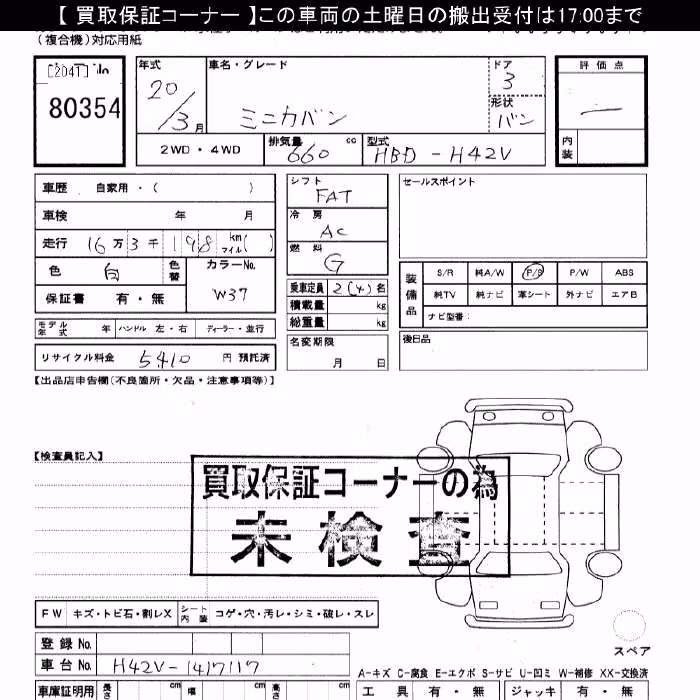 【 買取保証コーナー 】この車両の土曜日の搬出受付は17:00まで
(複合機)対応用紙
[204T] No
80354
年式
20/3月
車名・グレード
ミニカバン
ドア
3
形状
バン
評価点
—
内装
2WD・4WD
排気量
660 cc
型式
HBD-H42V
車歴 自家用・( )
車検 年 月
走行 16万3千198 km マイル( )
色 白 色替
カラーNo.
W37
保証書 有・無
モデル年式 年 ハンドル 左・右 ディーラー・並行
リサイクル料金 5410 円 預託済
シフト
FAT
冷房
AC
燃料
G
乗車定員 2(4)名
積載量 kg
総重量 kg
名変期限
月 日
セールスポイント
装備品
S/R 純A/W P/S P/W ABS
純TV 純ナビ 革シート 外ナビ エアB
ナビ型番:
後日品
【出品店申告欄(不良箇所・欠品・注意事項等)】
【検査員記入】
買取保証コーナーの為
未検査
FW キズ・トビ石・割レX シート内装 コゲ・穴・汚レ・シミ・破レ・スレ
登録 No.
車台 No. H42V-1417117
スペア
A-キズ C-腐食 E-エクボ S-サビ U-凹ミ W-補修 XX-交換済
車庫証明用 長さ cm 幅 cm 高さ cm
工具 有・無 ジャッキ 有・無